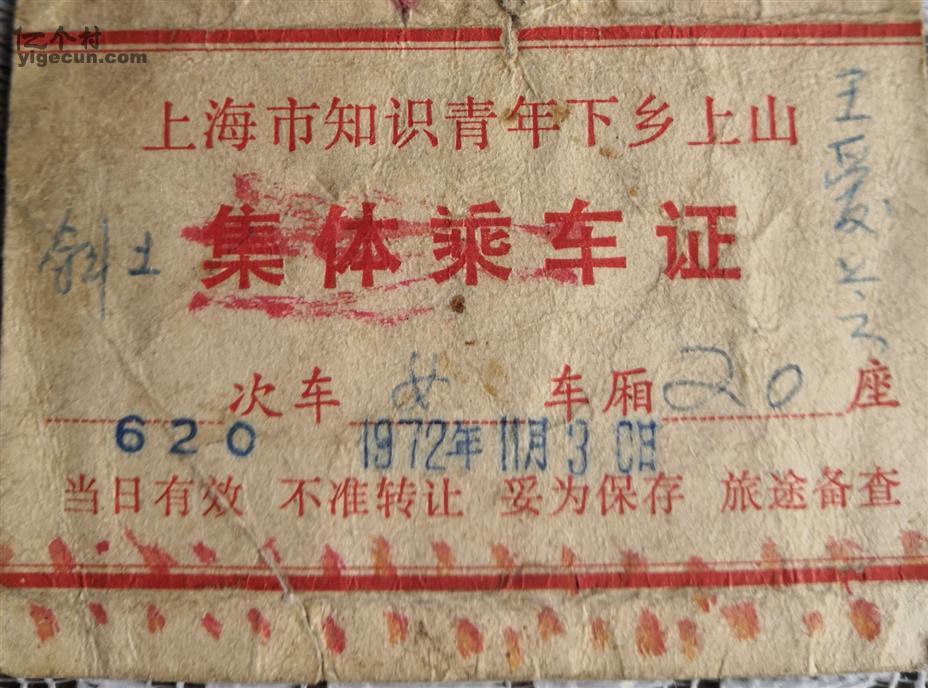 亿个村
yigecun.com
上海市知识青年下乡上山
斜土
集体乘车证
次车 车厢 20 座
620 1972年11月30日
当日有效 不准转让 妥为保存 旅途备查
王爱